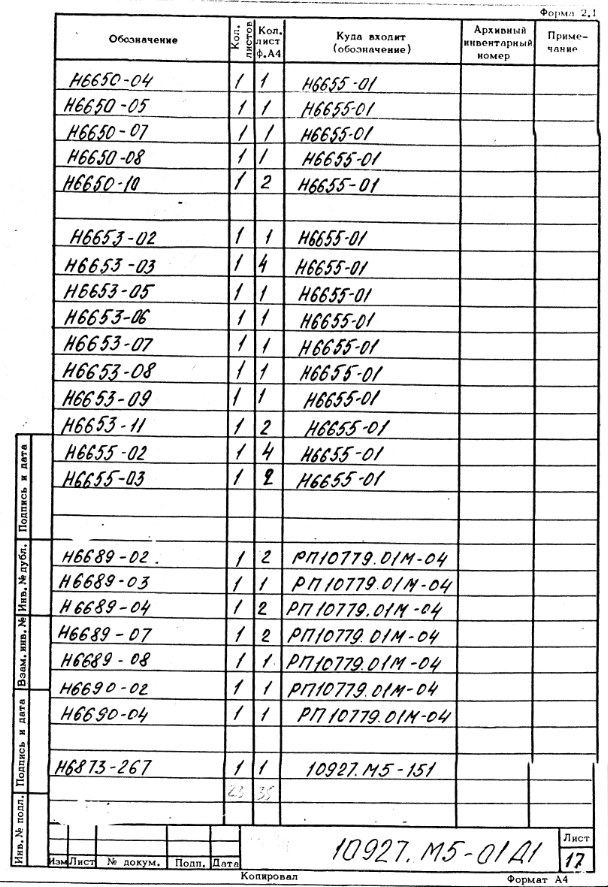 Форма 2.1
Обозначение Кол. листов Кол. лист ф.А4 Куда входит (обозначение) Архивный инвентарный номер Приме- чание
Н6650-04 1 1 Н6655-01
Н6650-05 1 1 Н6655-01
Н6650-07 1 1 Н6655-01
Н6650-08 1 1 Н6655-01
Н6650-10 1 2 Н6655-01
Н6653-02 1 1 Н6655-01
Н6653-03 1 4 Н6655-01
Н6653-05 1 1 Н6655-01
Н6653-06 1 1 Н6655-01
Н6653-07 1 1 Н6655-01
Н6653-08 1 1 Н6655-01
Н6653-09 1 1 Н6655-01
Н6653-11 1 2 Н6655-01
Н6655-02 1 4 Н6655-01
Н6655-03 1 2 Н6655-01
Н6689-02 1 2 РП10779.01М-04
Н6689-03 1 1 РП10779.01М-04
Н6689-04 1 2 РП10779.01М-04
Н6689-07 1 2 РП10779.01М-04
Н6689-08 1 1 РП10779.01М-04
Н6690-02 1 1 РП10779.01М-04
Н6690-04 1 1 РП10779.01М-04
Н6873-267 1 1 10927.М5-151
23 35
Подпись и дата
Инв. № дубл.
Взам. инв. №
Подпись и дата
Инв. № подл.
Изм Лист № докум. Подп. Дата
10927.М5-01Д1
Лист
17
Копировал Формат А4